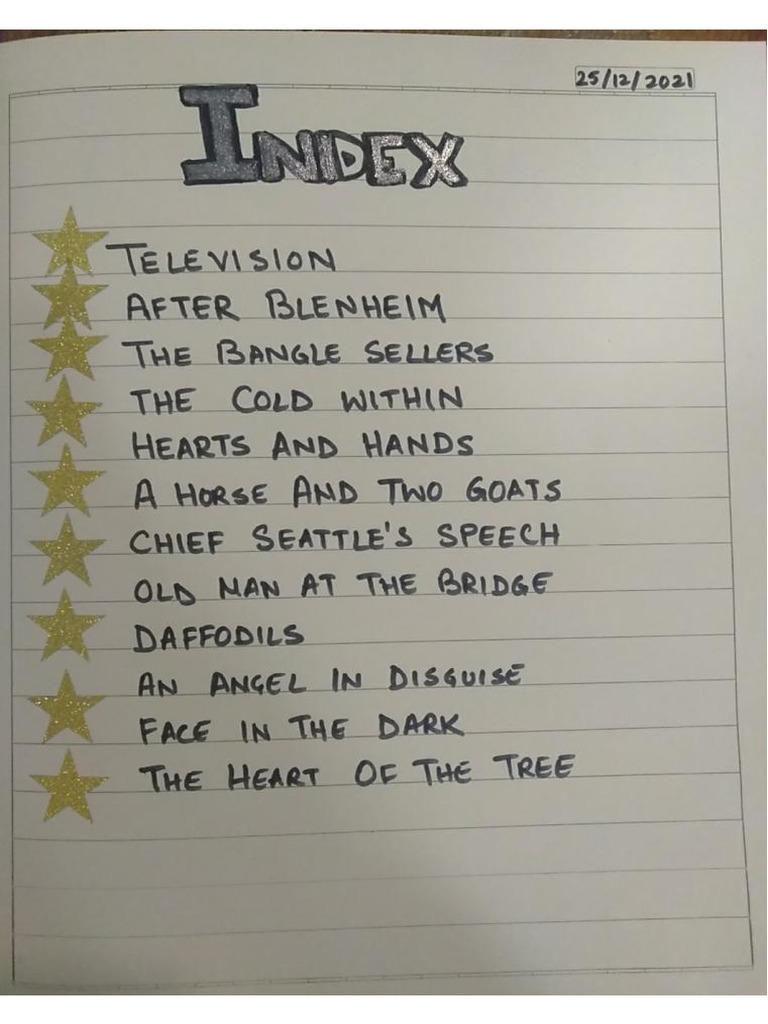 25/12/2021
INDEX
TELEVISION
AFTER BLENHEIM
THE BANGLE SELLERS
THE COLD WITHIN
HEARTS AND HANDS
A HORSE AND TWO GOATS
CHIEF SEATTLE'S SPEECH
OLD MAN AT THE BRIDGE
DAFFODILS
AN ANGEL IN DISGUISE
FACE IN THE DARK
THE HEART OF THE TREE